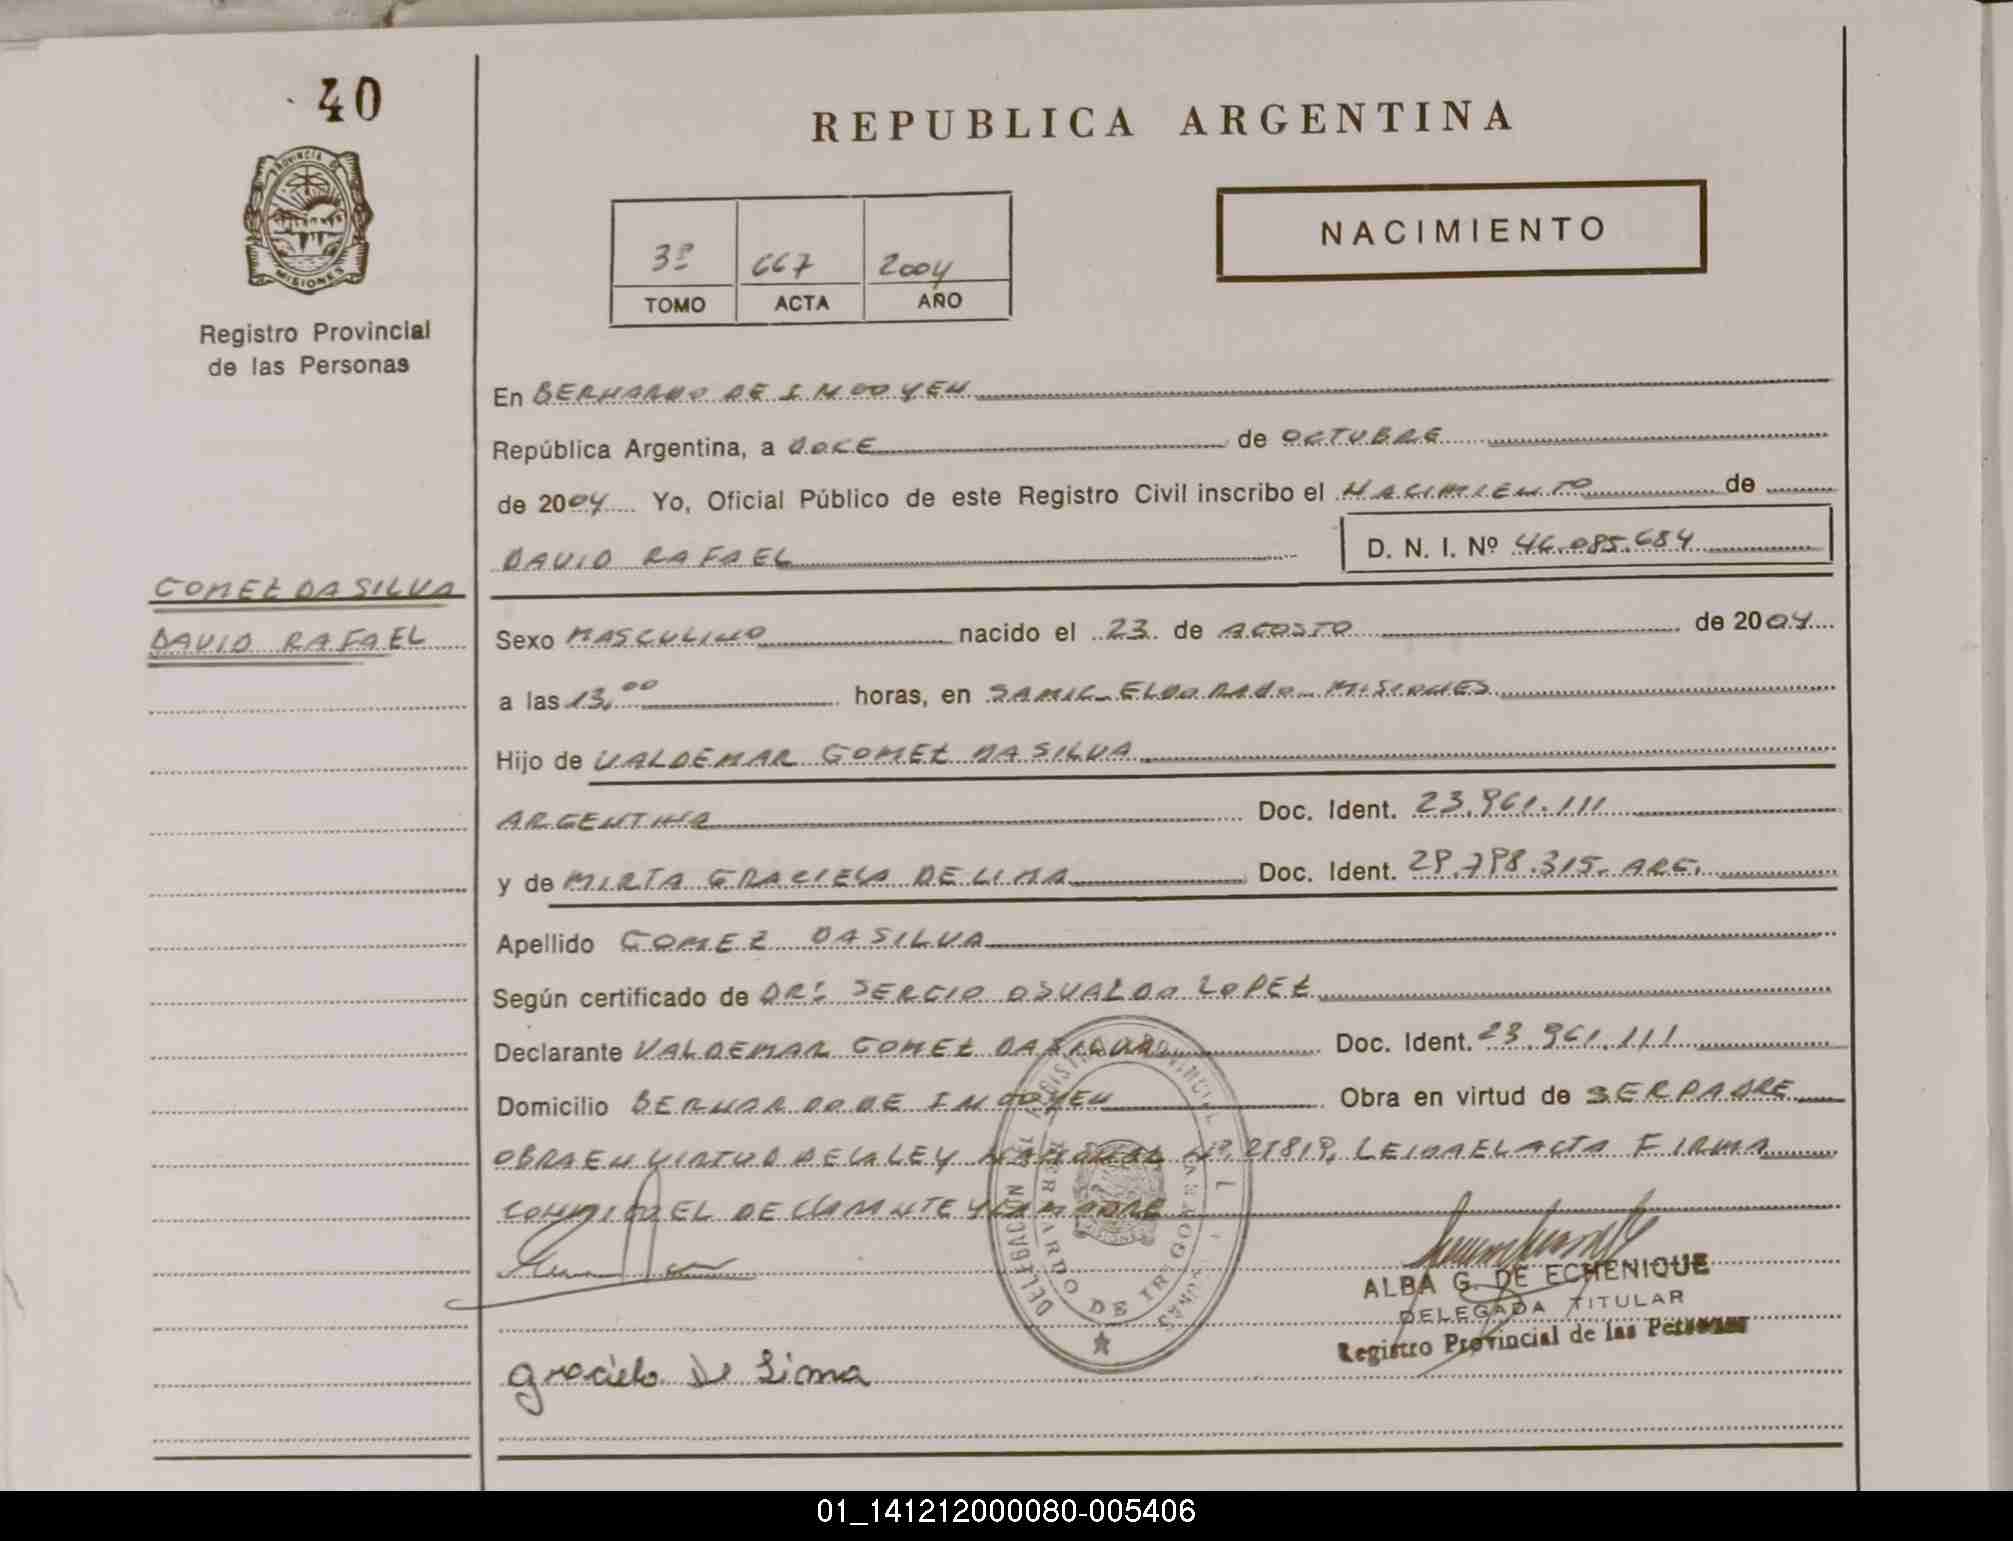 40
PROVINCIA DE
MISIONES
Registro Provincial
de las Personas
GOMEZ DA SILVA
DAVID RAFAEL
REPUBLICA ARGENTINA
3º 667 2004
TOMO ACTA AÑO
NACIMIENTO
En BERNARDO DE IRIGOYEN
República Argentina, a DOCE de OCTUBRE
de 2004 Yo, Oficial Público de este Registro Civil inscribo el NACIMIENTO de
DAVID RAFAEL D. N. I. Nº 46.085.684
Sexo MASCULINO nacido el 23 de AGOSTO de 2004
a las 13,00 horas, en SAMIC ELDORADO MISIONES
Hijo de VALDEMAR GOMEZ DA SILVA
ARGENTINA Doc. Ident. 23.961.111
y de MIRTA GRACIELA DE LIMA Doc. Ident. 29.798.315. ARG.
Apellido GOMEZ DA SILVA
Según certificado de DR: SERGIO OSVALDO LOPEZ
Declarante VALDEMAR GOMEZ DA SILVA Doc. Ident. 23.961.111
Domicilio BERNARDO DE IRIGOYEN Obra en virtud de SER PADRE
OBRA EN VIRTUD DE LA LEY NACIONAL Nº LEIDA EL ACTA FIRMA
CONMIGO EL DECLARANTE Y LA MADRE
DELEGACION BERNARDO DE IRIGOYEN
Graciela De Lima
ALBA G. DE ECHENIQUE
DELEGADA TITULAR
Registro Provincial de las Personas
01_141212000080-005406